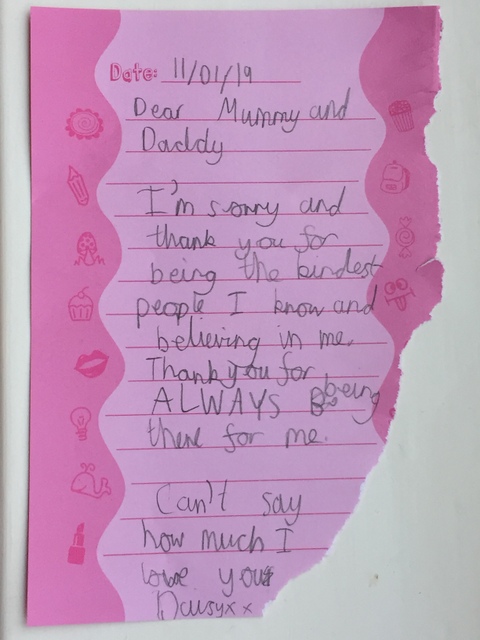 Date: 11/01/19
Dear Mummy and
Daddy
I'm sorry and
thank you for
being the kindest
people I know and
believing in me.
Thank you for
ALWAYS being
there for me.
Can't say
how much I
love you
Daisyxx